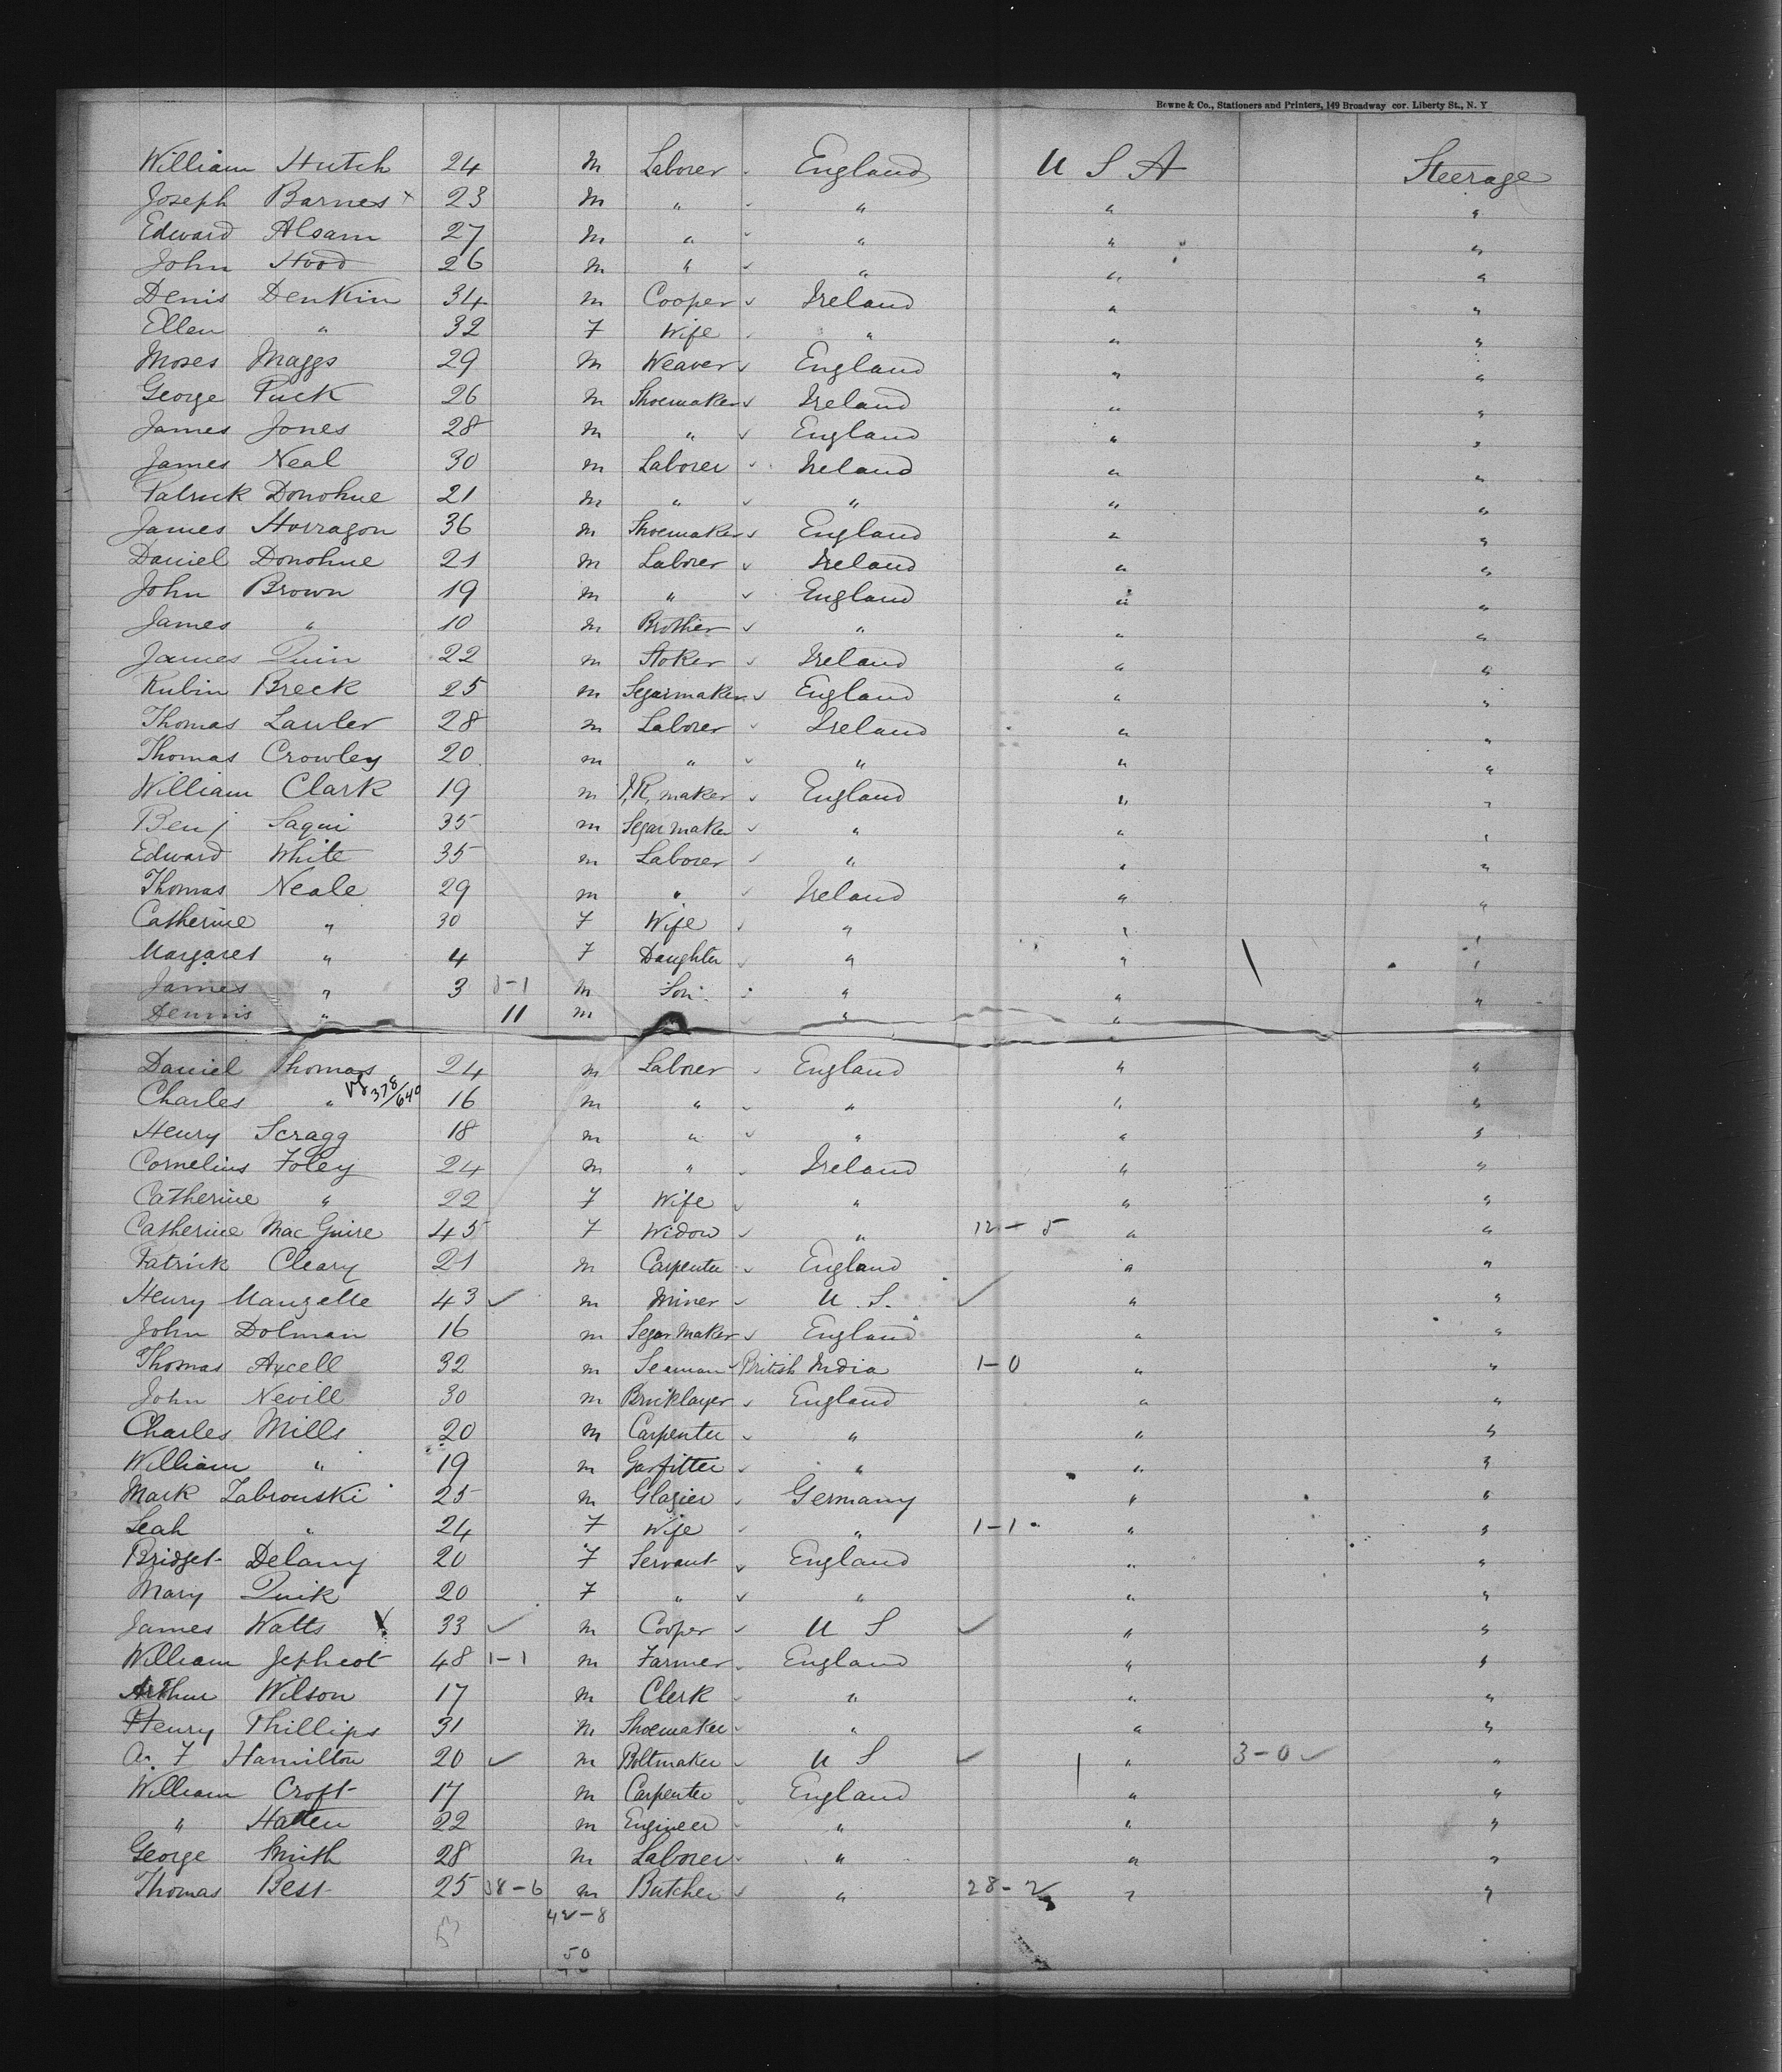 Bowne & Co., Stationers and Printers, 149 Broadway cor. Liberty St., N. Y
William Hutch 24 m Laborer England U S A Steerage
Joseph Barnes x 23 m " " " "
Edward Alsam 27 m " " " "
John Hood 26 m " " " "
Denis Denkin 34 m Cooper Ireland " "
Ellen " 32 F Wife " " "
Moses Maggs 29 m Weaver England " "
George Puck 26 m Shoemaker Ireland " "
James Jones 28 m " England " "
James Neal 30 m Laborer Ireland " "
Patrick Donohue 21 m " " " "
James Horragon 36 m Shoemaker England " "
Daniel Donohue 21 m Laborer Ireland " "
John Brown 19 m " England " "
James " 10 m Brother " " "
James Quin 22 m Stoker Ireland " "
Rubin Breck 25 m Segarmaker England " "
Thomas Lawler 28 m Laborer Ireland " "
Thomas Crowley 20 m " " " "
William Clark 19 m maker England " "
Benj Saqui 35 m Segar maker " " "
Edward White 35 m Laborer " " "
Thomas Neale 29 m " Ireland " "
Catherine " 30 F Wife " " "
Margaret " 4 F Daughter " " "
James " 3 m Son " " "
Dennis " 11 m " " "
Daniel Thomas 24 m Laborer England " "
Charles " 378/640 16 m " " " "
Henry Scragg 18 m " " " "
Cornelius Foley 24 m " Ireland " "
Catherine " 22 F Wife " " "
Catherine Mac Guire 45 F Widow " 12-5 " "
Patrick Cleary 21 m Carpenter England " "
Henry Manzelle 43 ✓ m Miner U. S. ✓ " "
John Dolman 16 m Segar Maker England " "
Thomas Axcell 32 m Seaman British India 1-0 " "
John Nevill 30 m Bricklayer England " "
Charles Mills 20 m Carpenter " " "
William " 19 m Gasfitter " " "
Mark Zabrouski 25 m Glazier Germany " "
Leah " 24 F Wife " 1-1 " "
Bridget Delany 20 F Servant England " "
Mary Quik 20 F " " " "
James Watts 33 ✓ m Cooper U S ✓ " "
William Jephcot 48 1-1 m Farmer England " "
Arthur Wilson 17 m Clerk " " "
Henry Phillips 31 m Shoemaker " " "
A. F Hamilton 20 ✓ m Boltmaker U S ✓ " 3-0 ✓ "
William Croft 17 m Carpenter England " "
" Hatten 22 m Engineer " " "
George Smith 28 m Laborer " " "
Thomas Best 25 38-6 m Butcher " 28-2 " "
42-8
50